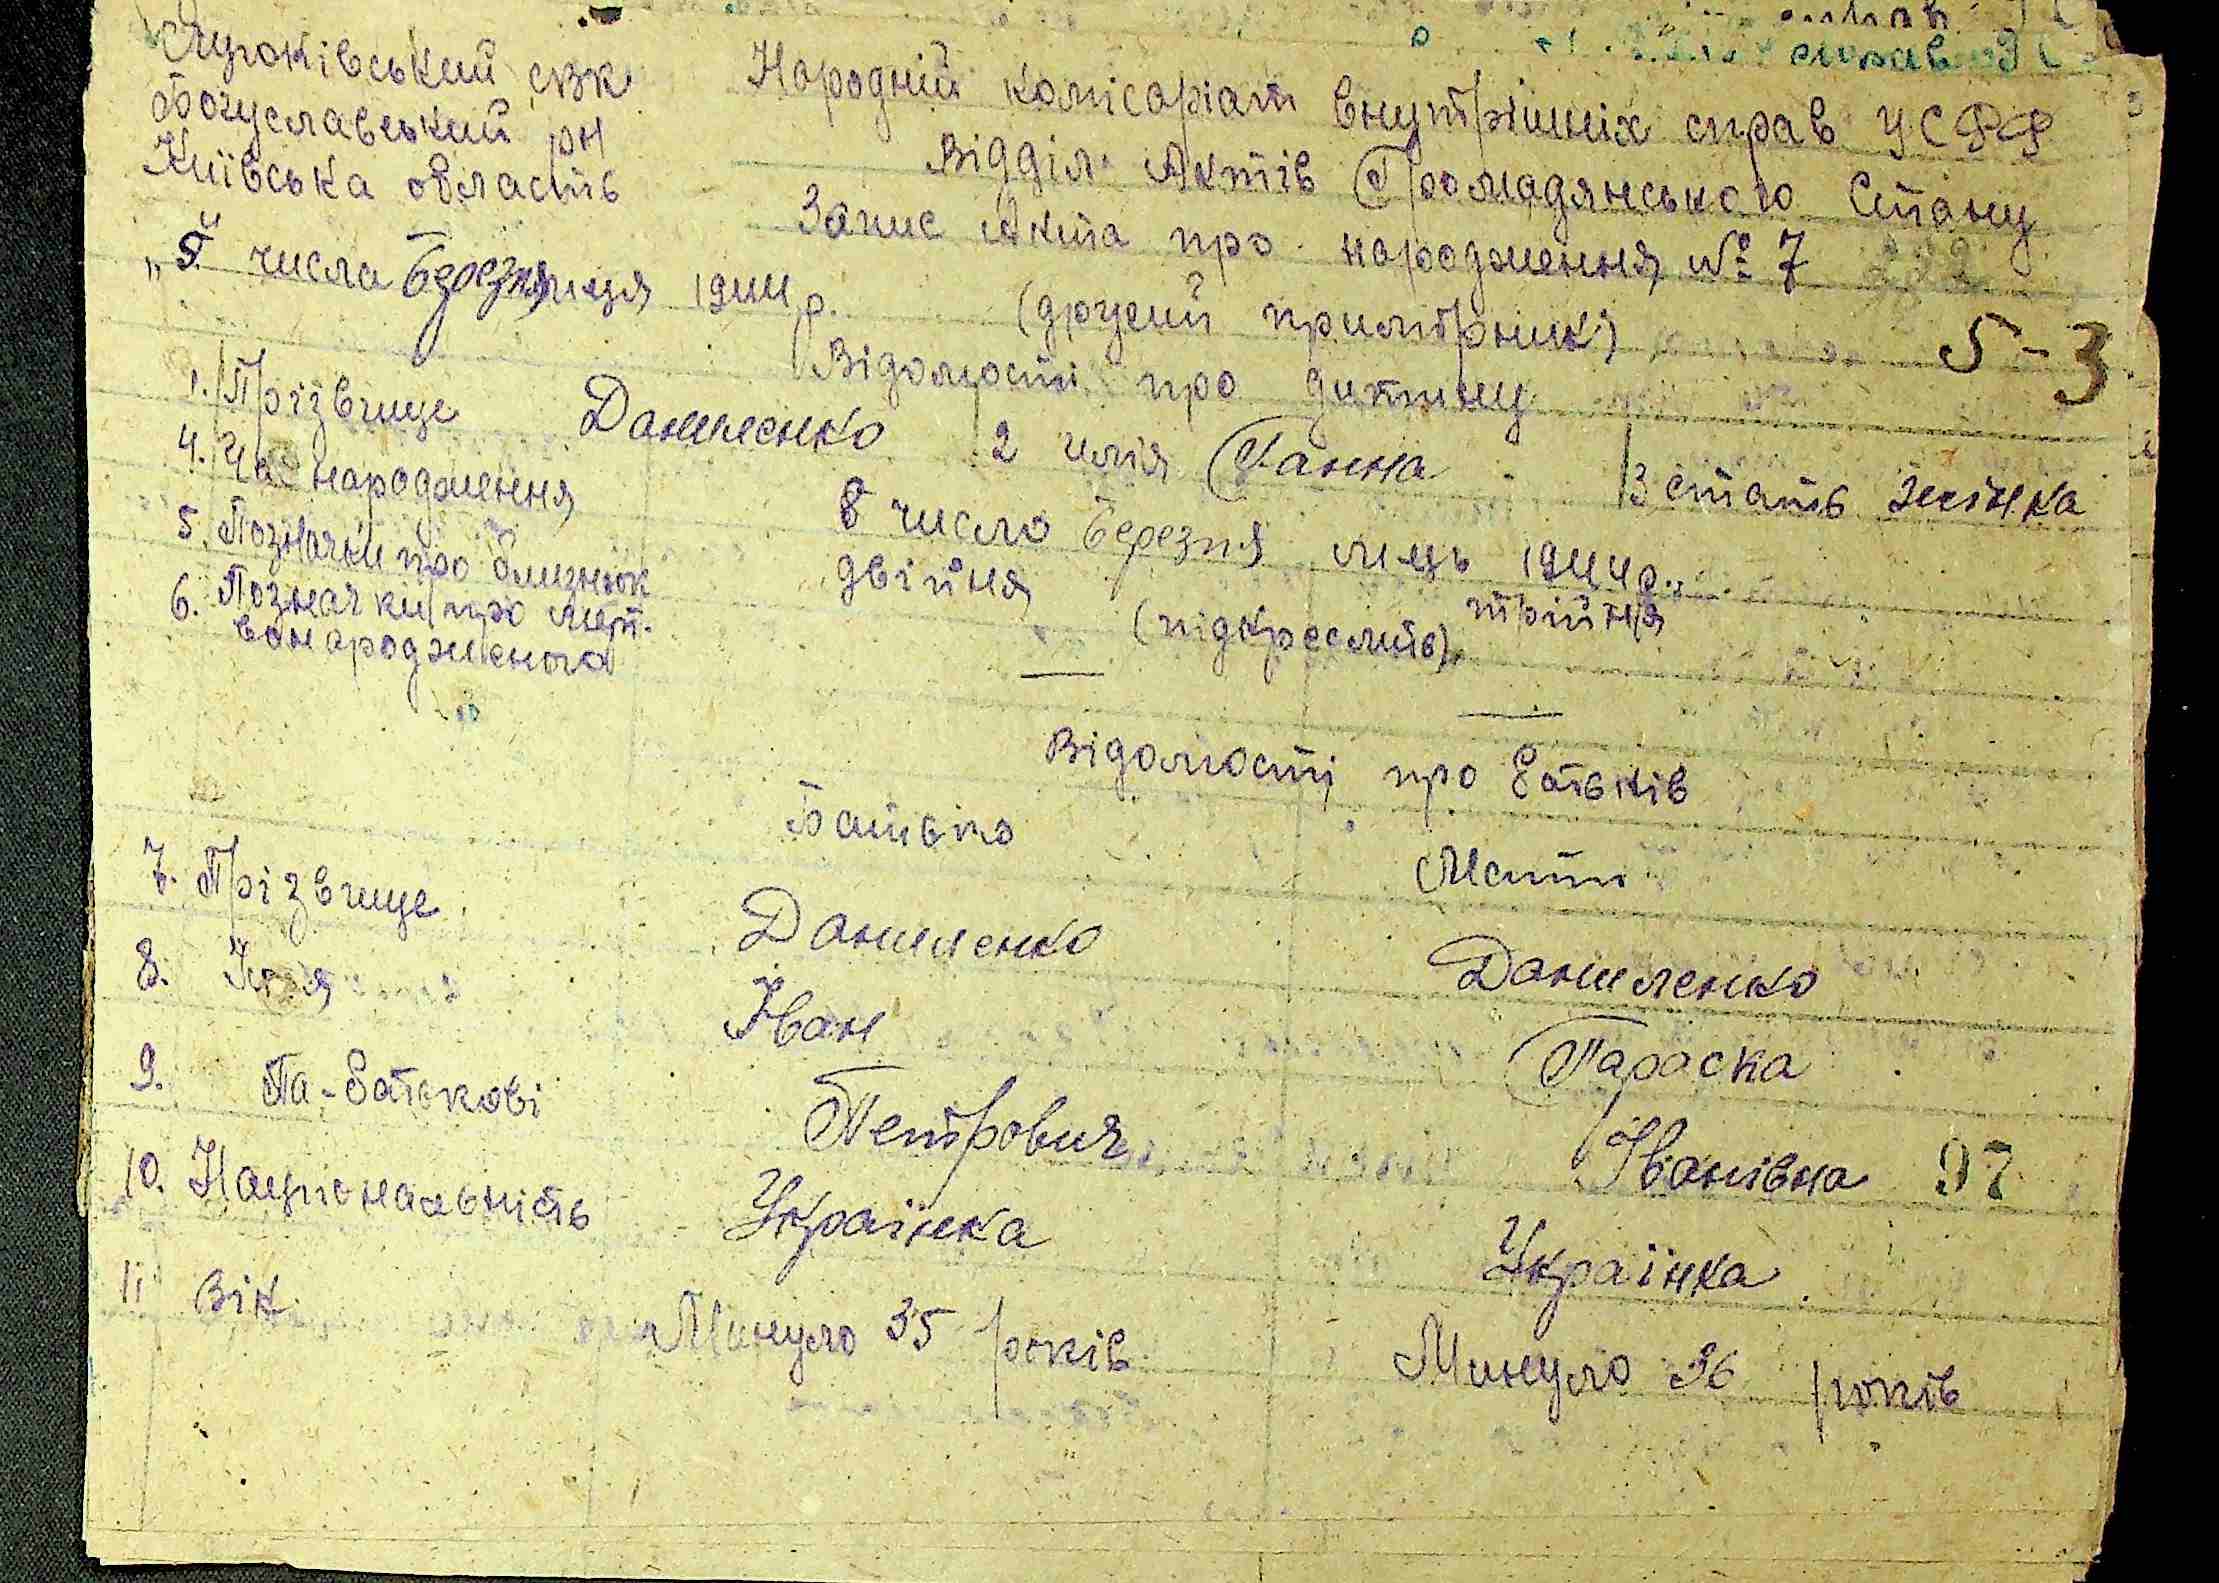 Богуславський рн
Київська область
Народній комісаріат внутрішніх справ УСРР
Відділ Актів Громадянського Стану
Запис Акта про народження № 7
(другий примірник)
числа Березня місця 1944 р.
5-3
Відомості про дитину
1. Прізвище Даниленко 2 імія Ганна 3 стать жінка
4. Час народження 8 число Березня місць 1944р.
5. Позначки про близнюк двійня (підкреслить) трійня
6. Позначки про мерт-
вонародженого — —
Відомості про батьків
Батько Мати
7. Прізвище Даниленко Даниленко
8. Імія Іван Параска
9. Па-батькові Петрович Іванівна
97
10. Національність Українка Українка
11 Вік Минуло 35 років Минуло 36 років